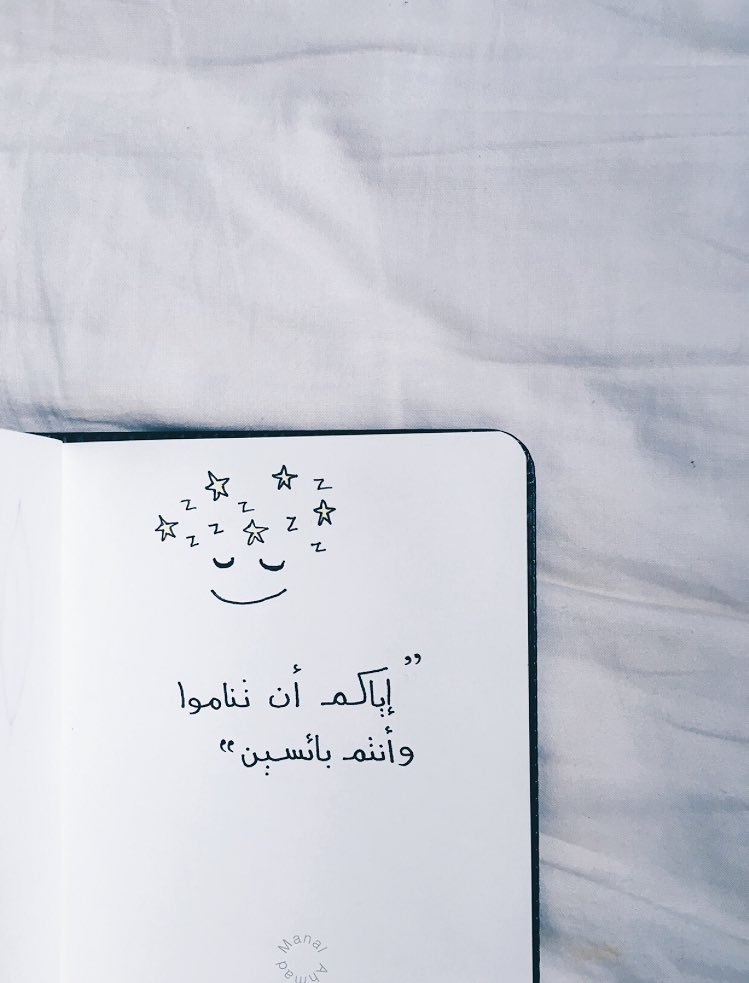 z
z z
z z z
z z
”إياكم أن تناموا
وأنتم بائسين“
Manal Ahmad